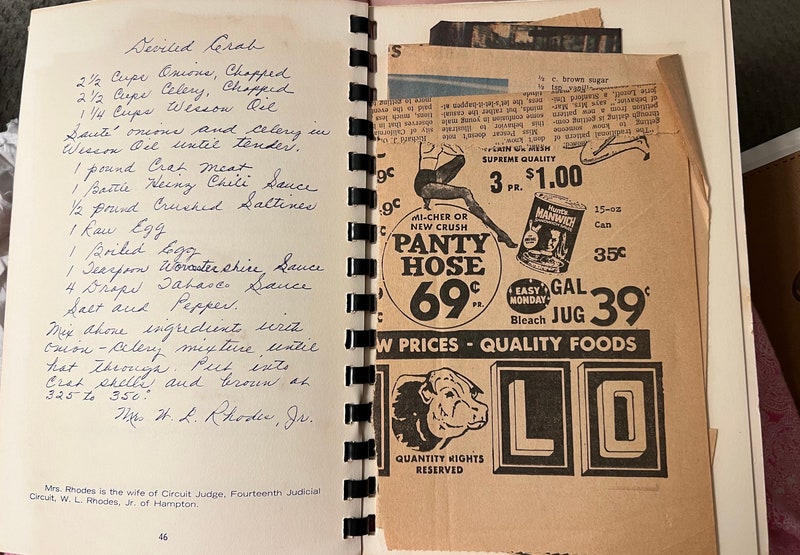 Deviled Crab
2 ½ Cups Onions, Chopped
2 ½ Cups Celery, Chopped
1 ¼ Cups Wesson Oil
Sauté onions and celery in
Wesson Oil until tender.
1 pound Crab Meat
1 Bottle Heinz Chili Sauce
½ pound Crushed Saltines
1 Raw Egg
1 Boiled Egg
1 Teaspoon Worcestershire Sauce
4 Drops Tabasco Sauce
Salt and Pepper.
Mix above ingredients with
onion-celery mixture until
hot through. Put into
Crab shells and brown at
325 to 350°
Mrs W. L. Rhodes, Jr.
Mrs. Rhodes is the wife of Circuit Judge, Fourteenth Judicial
Circuit, W. L. Rhodes, Jr. of Hampton.
46
S
½ c. brown sugar
PLAIN OR MESH
SUPREME QUALITY
3 PR. $1.00
9¢
.9¢
MI-CHER OR
NEW CRUSH
PANTY
HOSE
69¢ PR.
Hunt's
MANWICH
15-oz
Can
35¢
EASY
MONDAY
Bleach
GAL
JUG
39¢
W PRICES - QUALITY FOODS
L O
QUANTITY RIGHTS
RESERVED